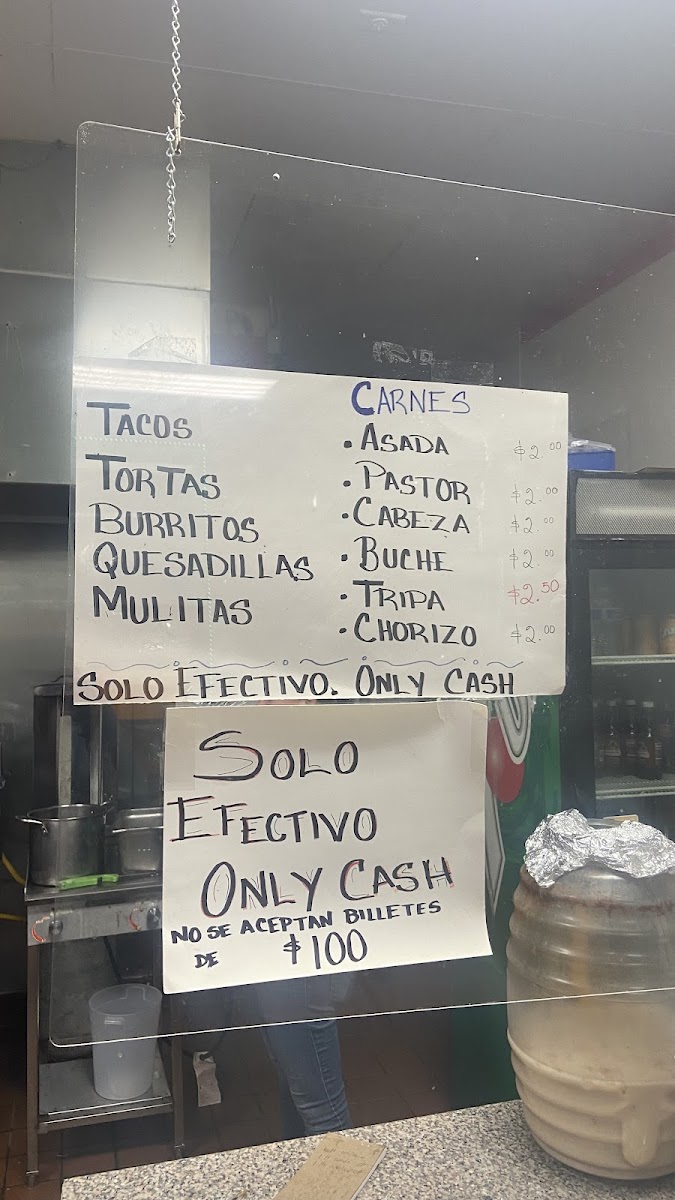 TACOS
TORTAS
BURRITOS
QUESADILLAS
MULITAS
CARNES
• ASADA $2.00
• PASTOR $2.00
• CABEZA $2.00
• BUCHE $2.00
• TRIPA $2.50
• CHORIZO $2.00
SOLO EFECTIVO. ONLY CASH
SOLO
EFECTIVO
ONLY CASH
NO SE ACEPTAN BILLETES
DE $100